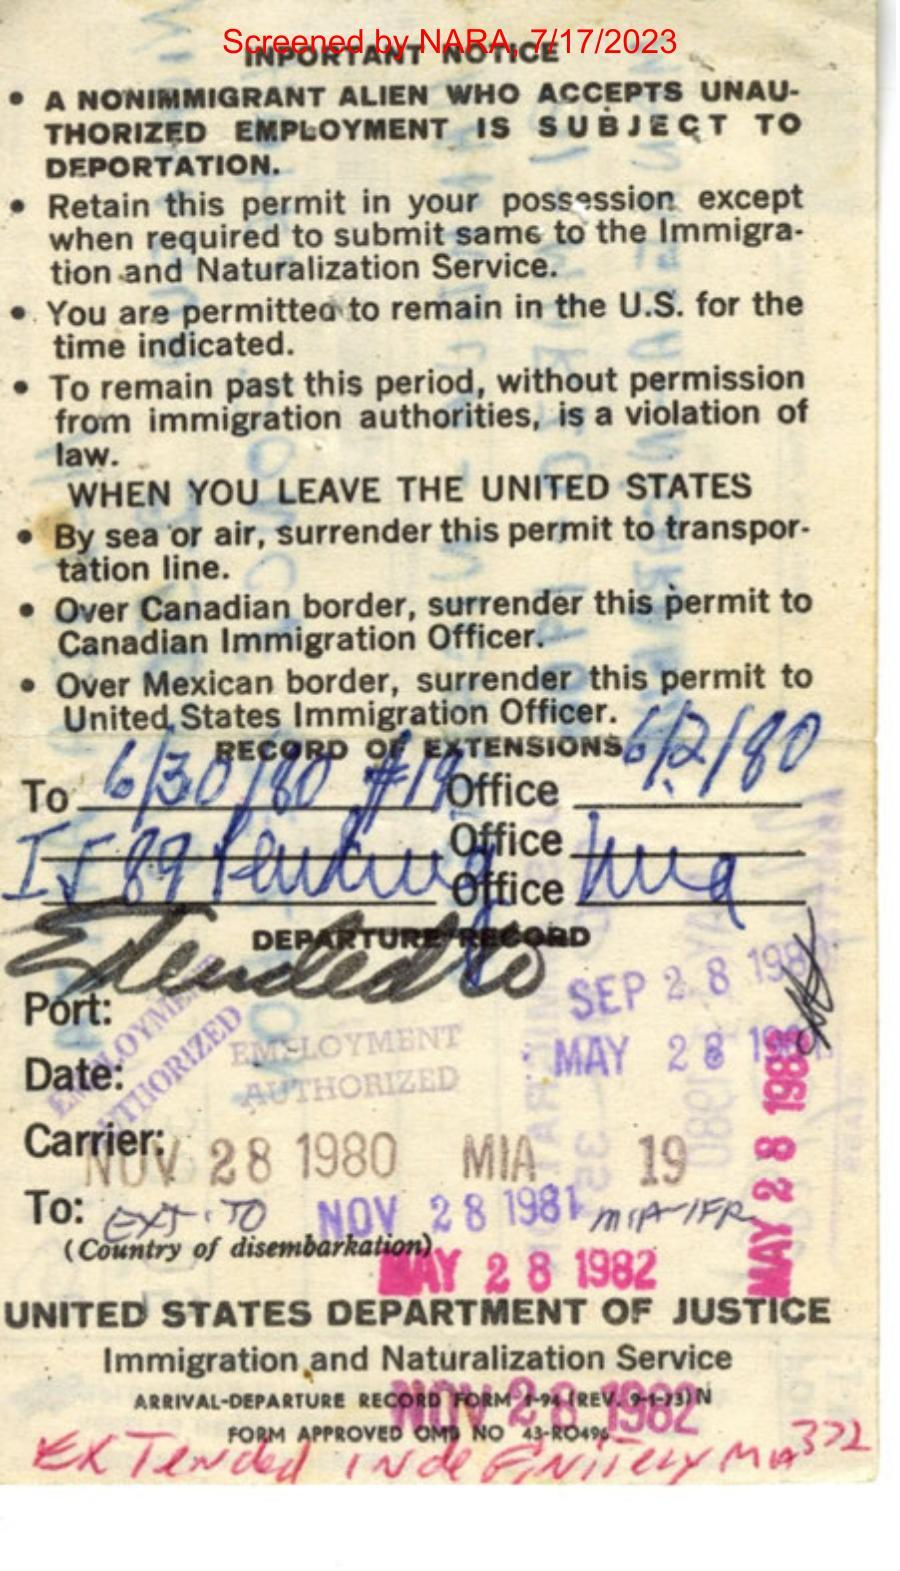 Screened by NARA, 7/17/2023
INPORTANT NOTICE
• A NONIMMIGRANT ALIEN WHO ACCEPTS UNAU-
THORIZED EMPLOYMENT IS SUBJECT TO
DEPORTATION.
• Retain this permit in your possession except
when required to submit same to the Immigra-
tion and Naturalization Service.
• You are permitted to remain in the U.S. for the
time indicated.
• To remain past this period, without permission
from immigration authorities, is a violation of
law.
WHEN YOU LEAVE THE UNITED STATES
• By sea or air, surrender this permit to transpor-
tation line.
• Over Canadian border, surrender this permit to
Canadian Immigration Officer.
• Over Mexican border, surrender this permit to
United States Immigration Officer.
RECORD OF EXTENSIONS 6/2/80
To 6/30/80 #19 Office
Office
I589 Pending Office Mia
DEPARTURE RECORD
Extended to
SEP 28
Port:
EMPLOYMENT AUTHORIZED
EMPLOYMENT
MAY 28
Date:
AUTHORIZED
MAY 28 1983
Carrier:
NOV 28 1980 MIA 19
To: EXT. TO NOV 28 1981 MIA-IFR
(Country of disembarkation)
MAY 28 1982
UNITED STATES DEPARTMENT OF JUSTICE
Immigration and Naturalization Service
ARRIVAL-DEPARTURE RECORD FORM I-94 (REV. 9-1-73)N
NOV 28 1982
FORM APPROVED OMB NO 43-RO496
EXTended INdeFiNiTely MIA 322